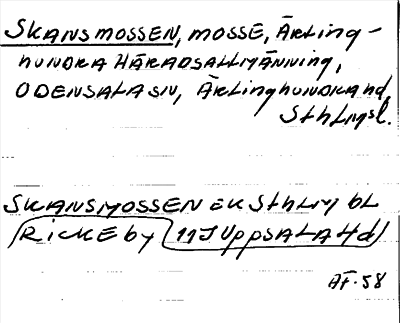 SKANSMOSSEN, MOSSE, ÄRLING-
HUNDRA HÄRADSALLMÄNNING,
ODENSALA SN, ÄRLINGHUNDRA hd,
SthLmsl.
SKANSMOSSEN EK SthLm bL
RICKEby 11J UppsALA Hd
ÄF.58